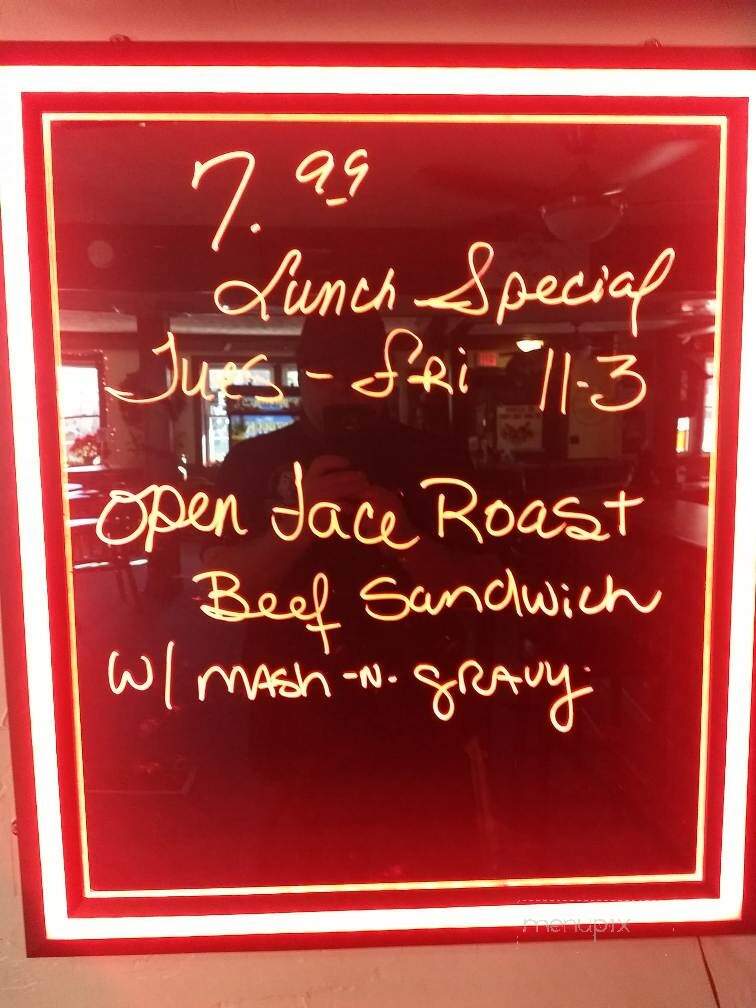 7.99
Lunch Special
Tues - Fri 11-3
Open Face Roast
Beef Sandwich
W/ MASh -N- gRAVy.
menupix